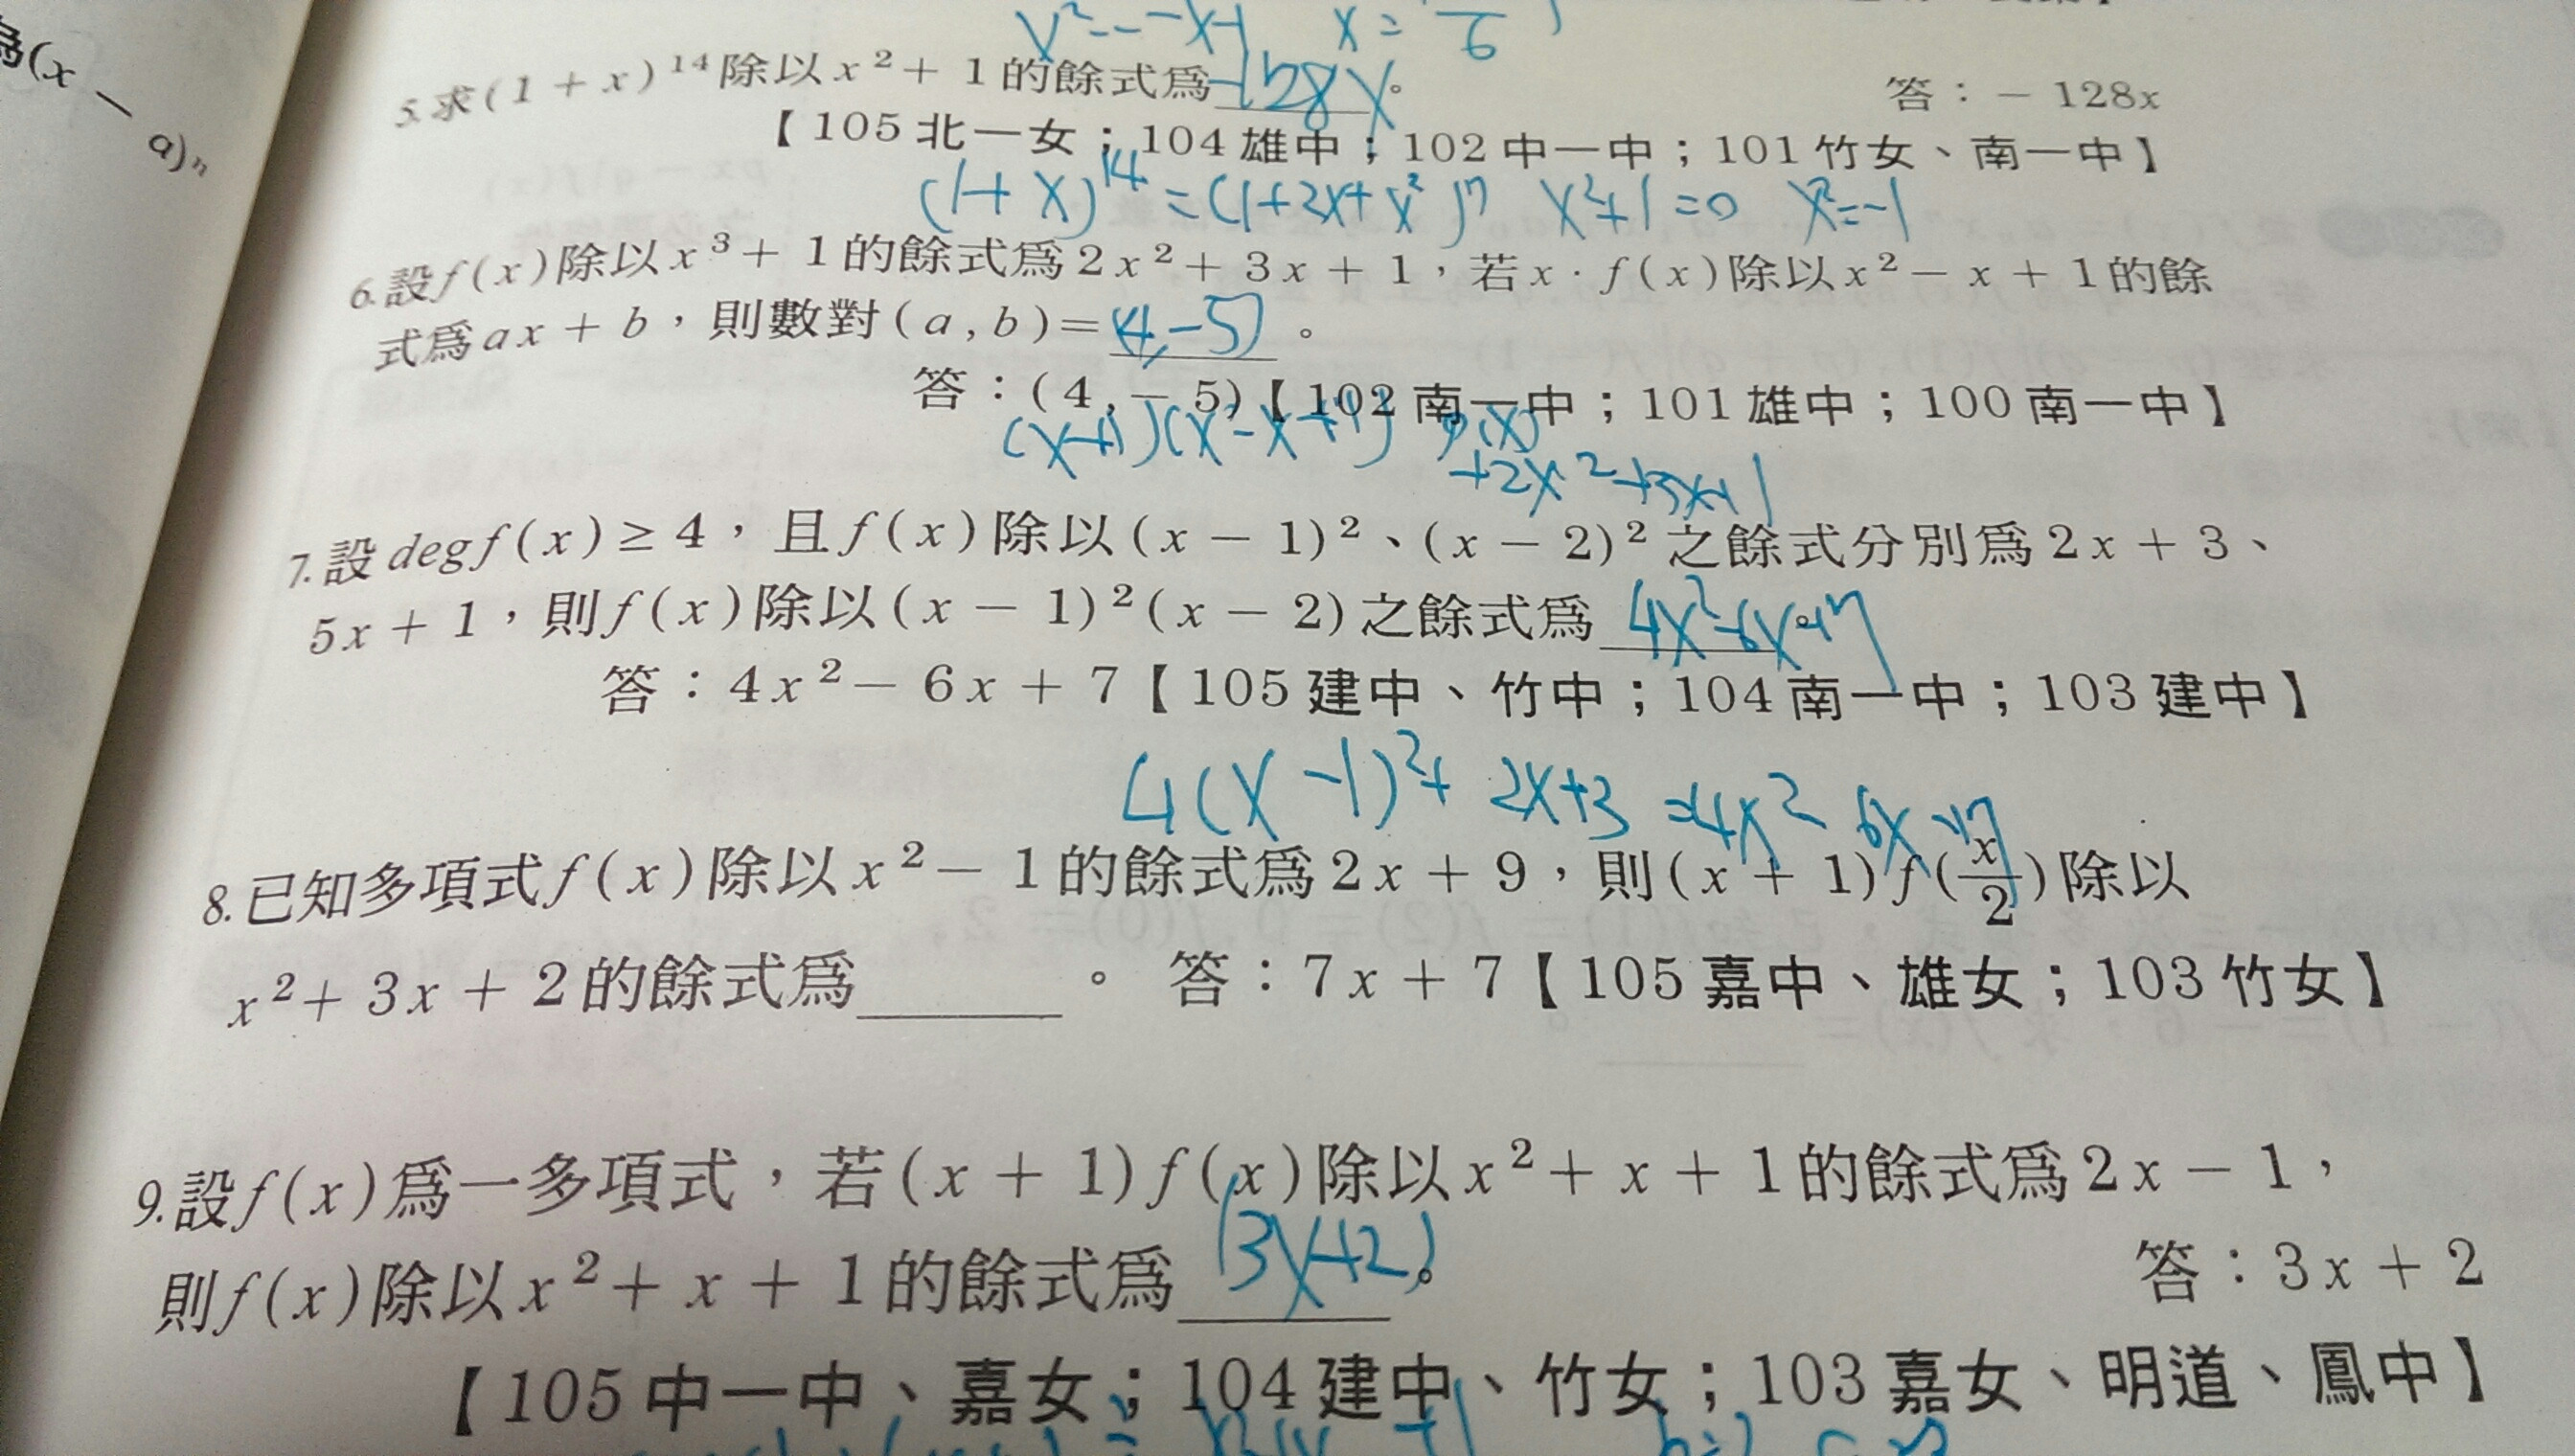 為(x - a)ⁿ
x²=-x-1
5.求(1+x)¹⁴除以x²+1的餘式為-128x。 答:-128x
【105北一女;104雄中;102中一中;101竹女、南一中】
(1+x)¹⁴=(1+2x+x²)⁷ x²+1=0 x²=-1
6.設f(x)除以x³+1的餘式為2x²+3x+1,若x·f(x)除以x²-x+1的餘
式為ax+b,則數對(a,b)=(4,-5)。
答:(4,-5)【102南一中;101雄中;100南一中】
(x+1)(x²-x+1) q(x)
+2x²+3x+1
7.設degf(x)≥4,且f(x)除以(x-1)²、(x-2)²之餘式分別為2x+3、
5x+1,則f(x)除以(x-1)²(x-2)之餘式為4x²-6x+7。
答:4x²-6x+7【105建中、竹中;104南一中;103建中】
4(x-1)²+2x+3=4x²-6x+7
8.已知多項式f(x)除以x²-1的餘式為2x+9,則(x+1)f(x/2)除以
x²+3x+2的餘式為______。答:7x+7【105嘉中、雄女;103竹女】
9.設f(x)為一多項式,若(x+1)f(x)除以x²+x+1的餘式為2x-1,
則f(x)除以x²+x+1的餘式為(3x+2)。 答:3x+2
【105中一中、嘉女;104建中、竹女;103嘉女、明道、鳳中】